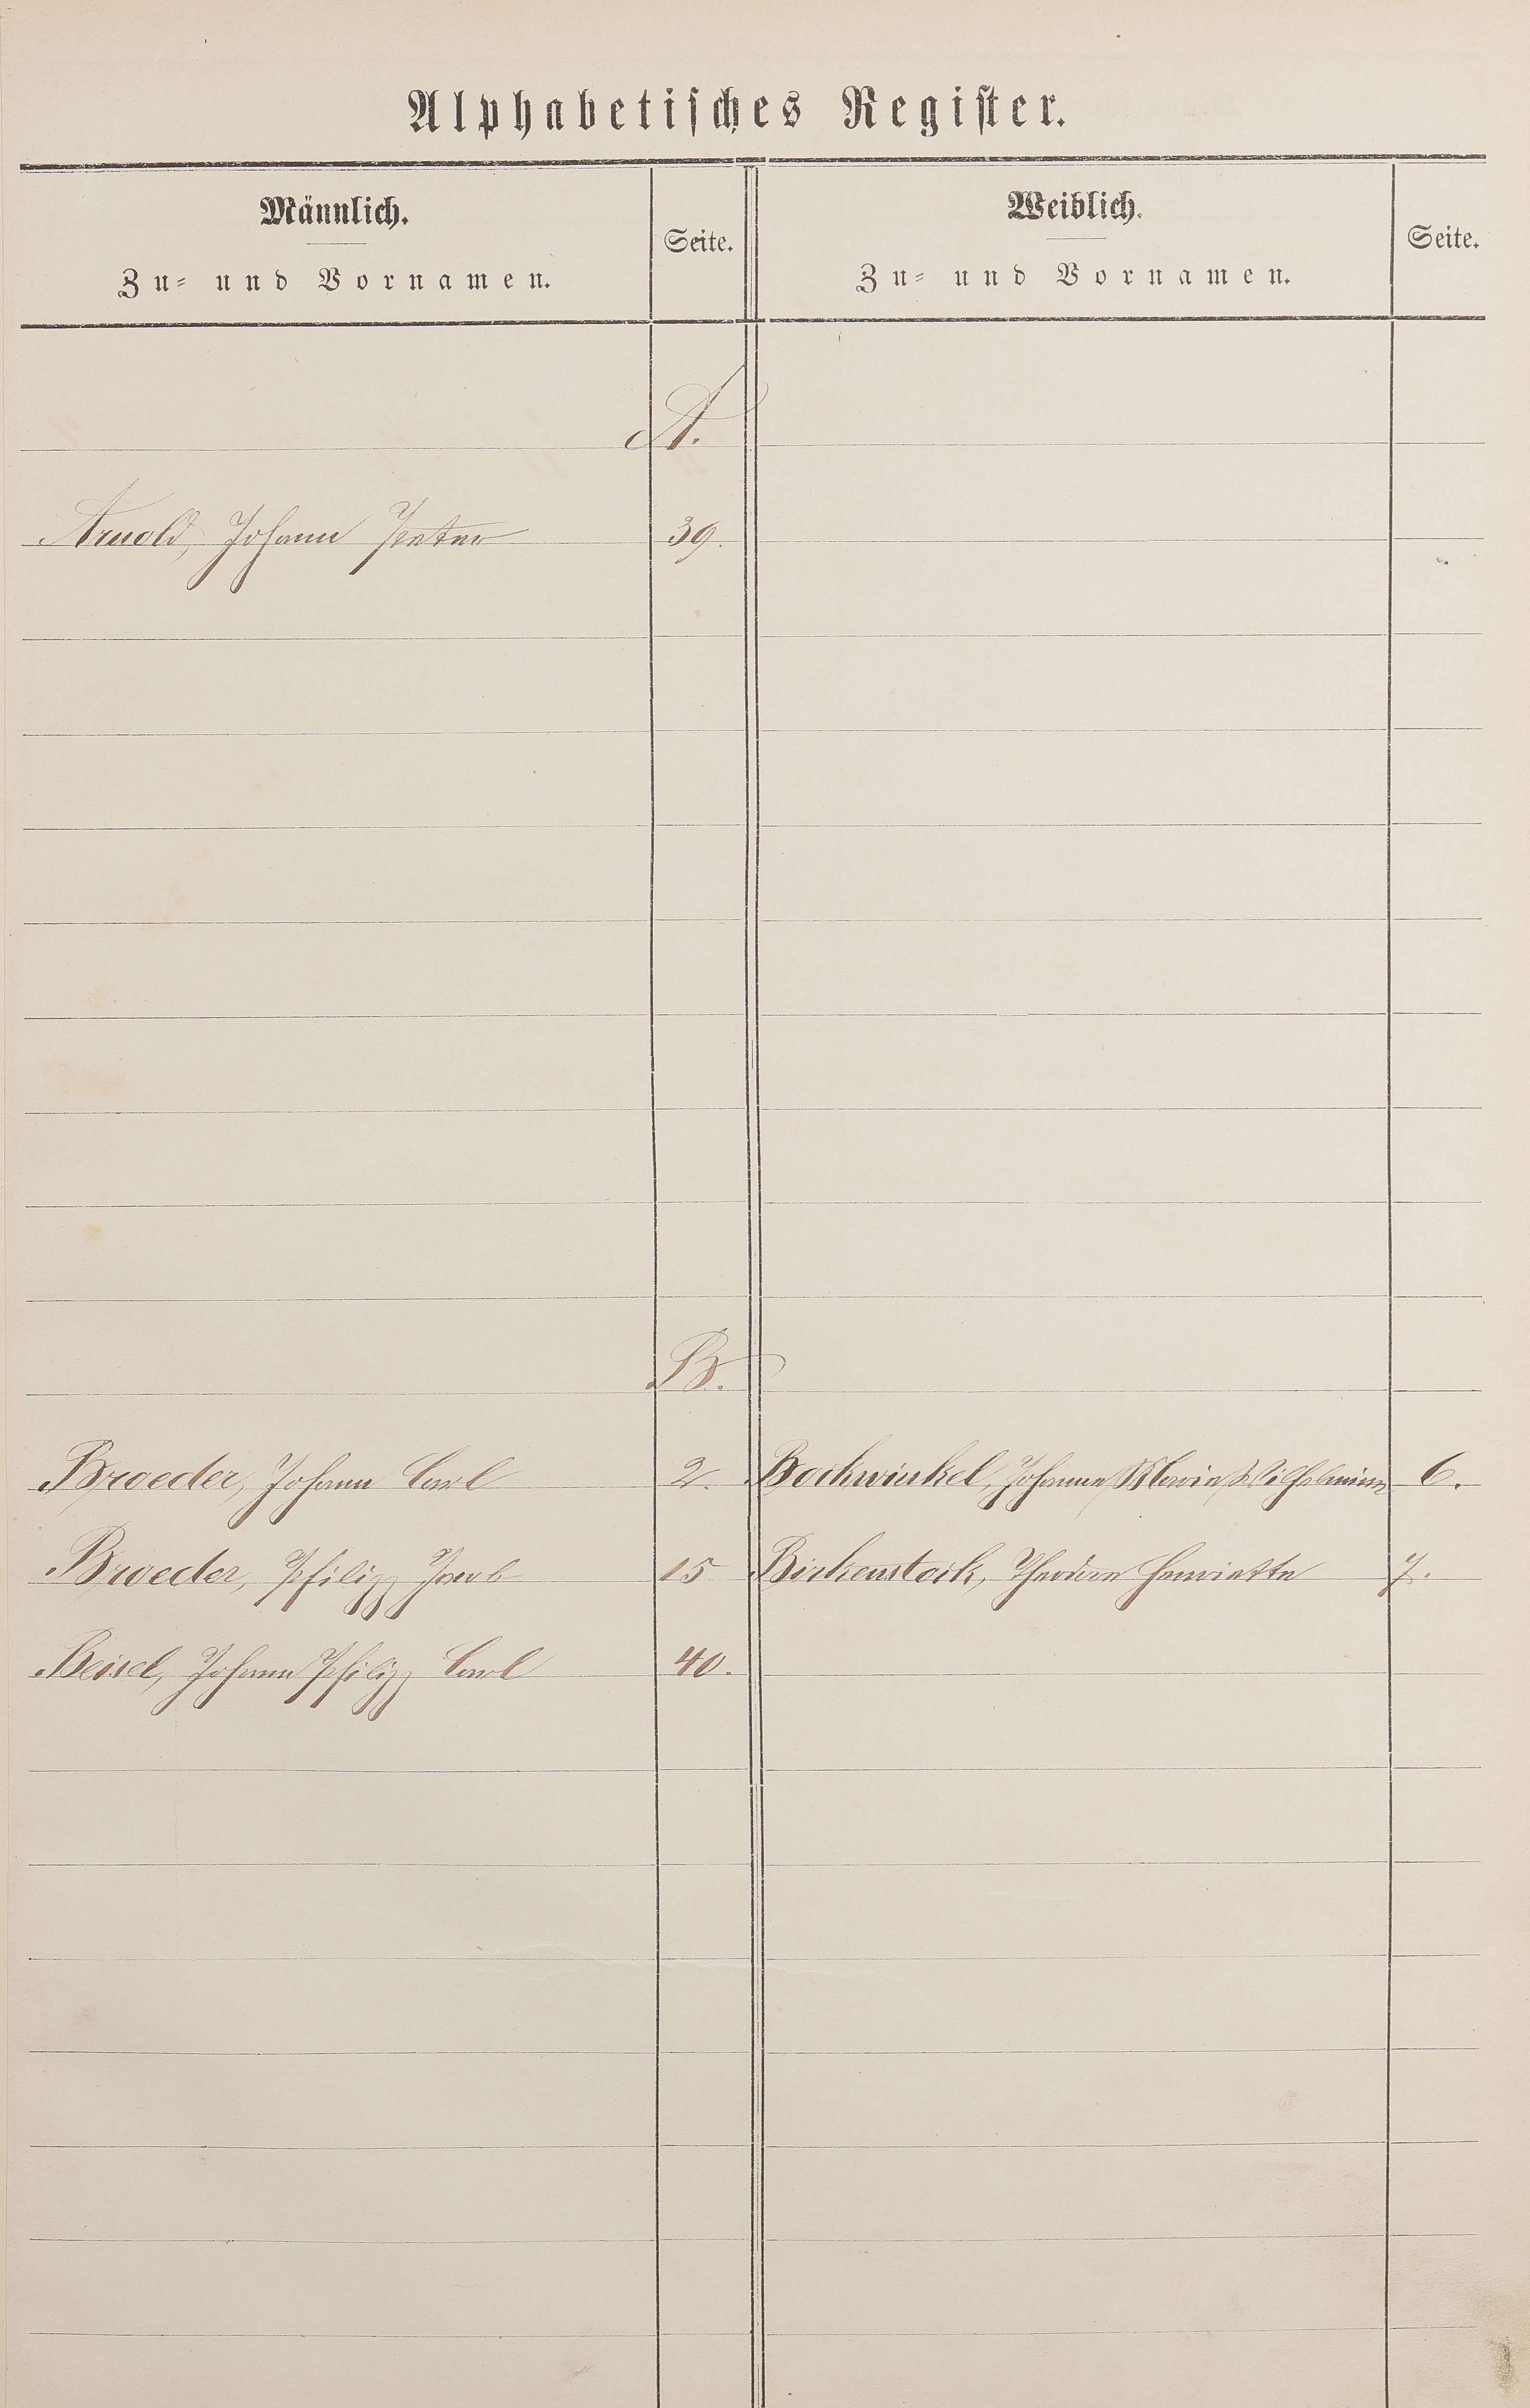 Alphabetisches Register.
Männlich.
Zu- und Vornamen.
Seite.
Weiblich.
Zu- und Vornamen.
Seite.
A.
Arnold, Johann Peter 39.
B.
Broeder, Johann Carl 2. Bockwinkel, Johanna Maria Wilhelmina 6.
Broeder, Philipp Jacob 15 Birkenstock, Theodora Henriette 7.
Beisel, Johann Philipp Carl 40.